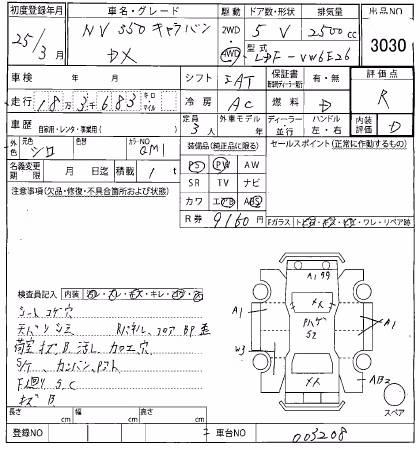 初度登録年月 車名・グレード 駆動 ドア数・形状 排気量 出品NO
25/3月 NV350キャラバン 2WD 5 V 2500cc 3030
DX 4WD 型式 LDF-VW6E26
車検 年 月 シフト IAT 保証書 有・無 評価点
走行 18万3千683 キロ マイル 冷房 AC 燃料 D R
車歴 自家用・レンタ・事業用( ) 定員 3人 外車モデル 年 ディーラー 並行 ハンドル 左・右 内装評価 D
外色 元色 シロ 色替 カラーNO QM1 装備品(純正品に限る) セールスポイント(正常に作動するもの)
名義変更期限 月 日迄 積載 1t PS PW AW
注意事項(欠品・修復・不具合箇所および状態) SR TV ナビ
カワ エアB ABS
R券 9160円 Fガラス ・ワレ・リペア跡
検査員記入 内装
シートコゲ穴
荷室キズ凹汚レ 加工穴
S/ケ、カンバン
F廻りS.C
キズ凹
A1 99
A1
W3
S2
A1
AB2
スペア
長さ cm 幅 cm 高さ cm
登録NO 車台NO 003208